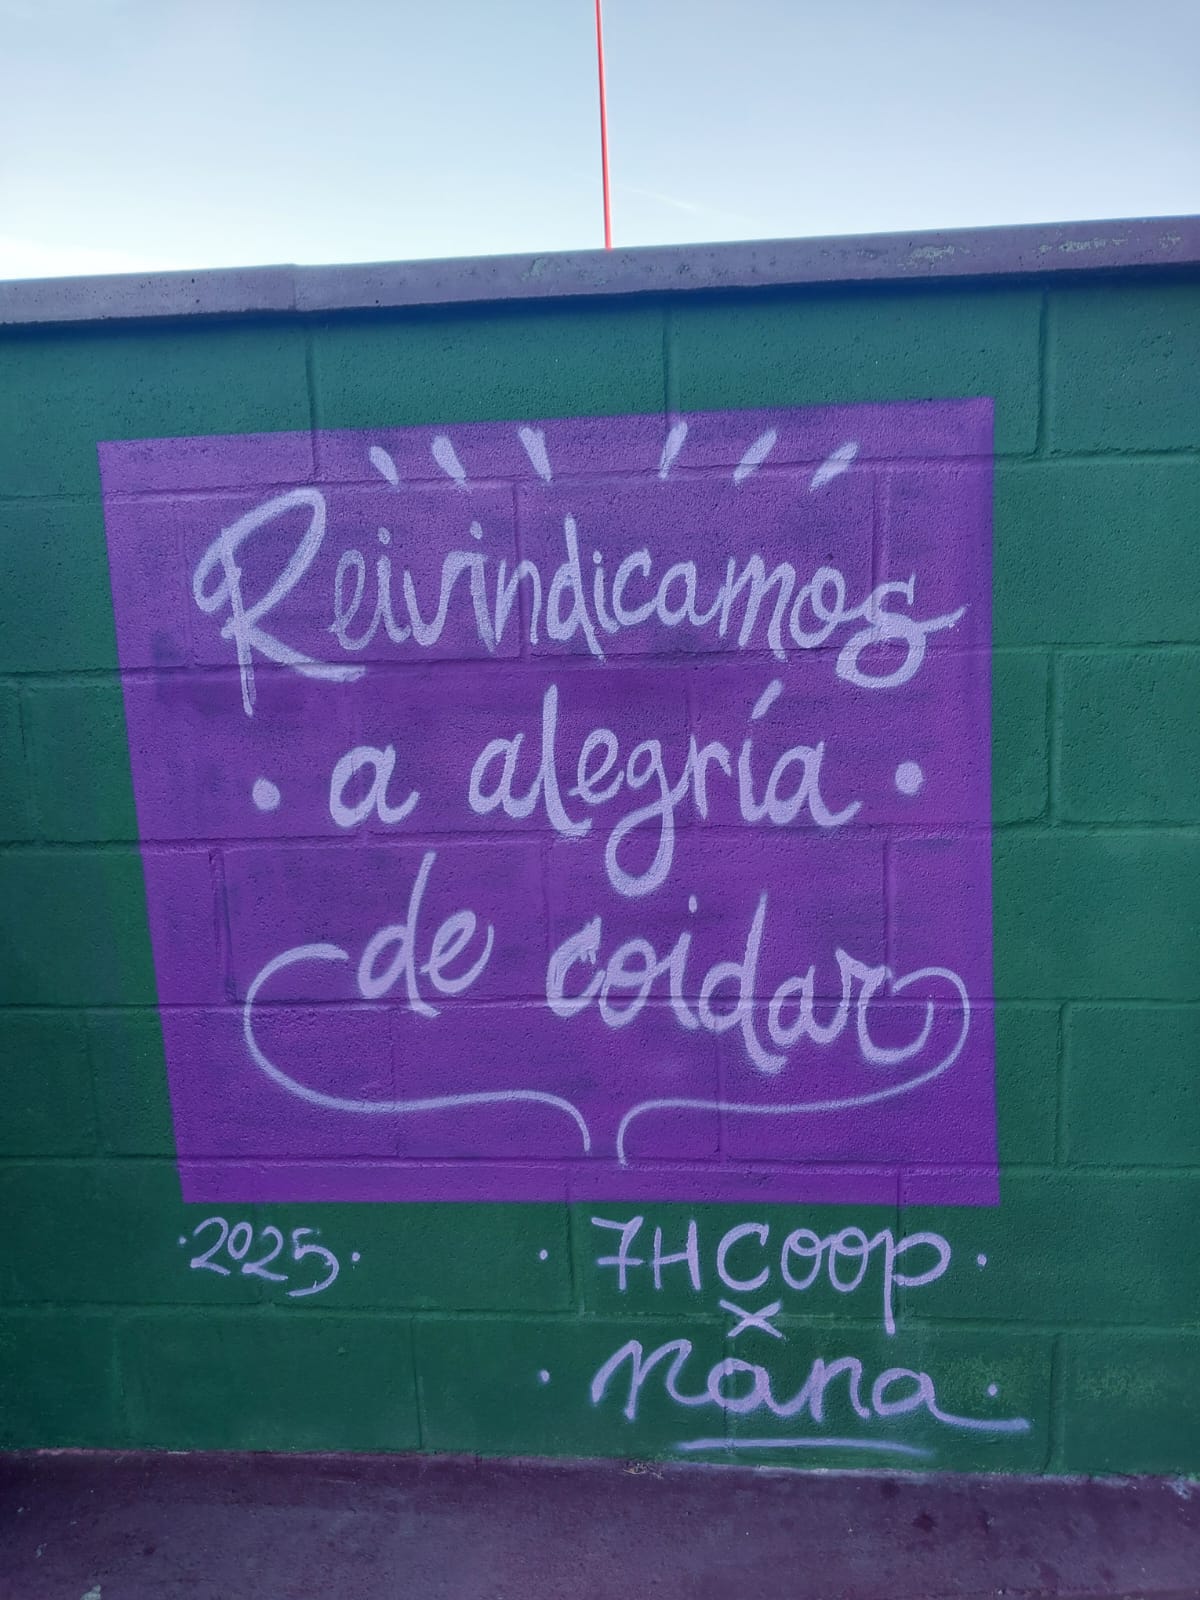 Reivindicamos
· a alegría ·
de coidar
·2025·
· 7HCOOP ·
x
· nana ·